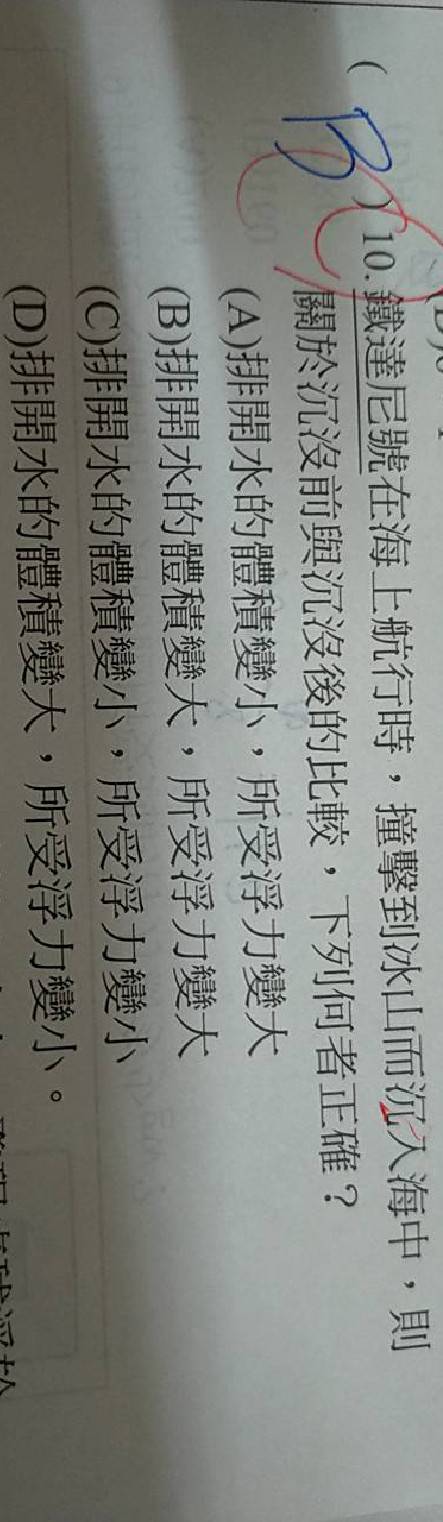 ( B ) 10.鐵達尼號在海上航行時，撞擊到冰山而沉入海中，則
關於沉沒前與沉沒後的比較，下列何者正確？
(A)排開水的體積變小，所受浮力變大
(B)排開水的體積變大，所受浮力變大
(C)排開水的體積變小，所受浮力變小
(D)排開水的體積變大，所受浮力變小。